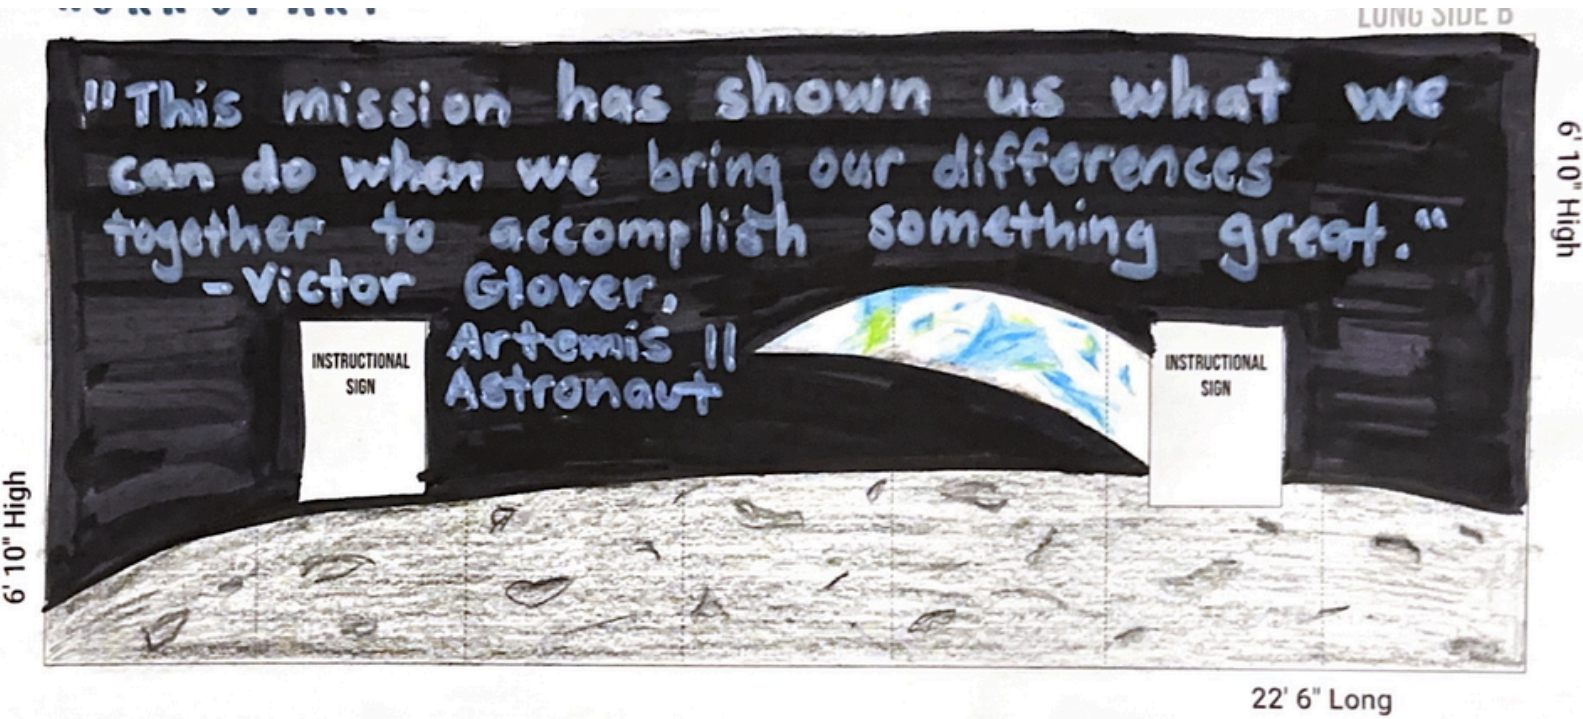 LONG SIDE B
"This mission has shown us what we
can do when we bring our differences
together to accomplish something great."
-Victor Glover,
Artemis II
Astronaut
INSTRUCTIONAL
SIGN
INSTRUCTIONAL
SIGN
6' 10" High
6' 10" High
22' 6" Long